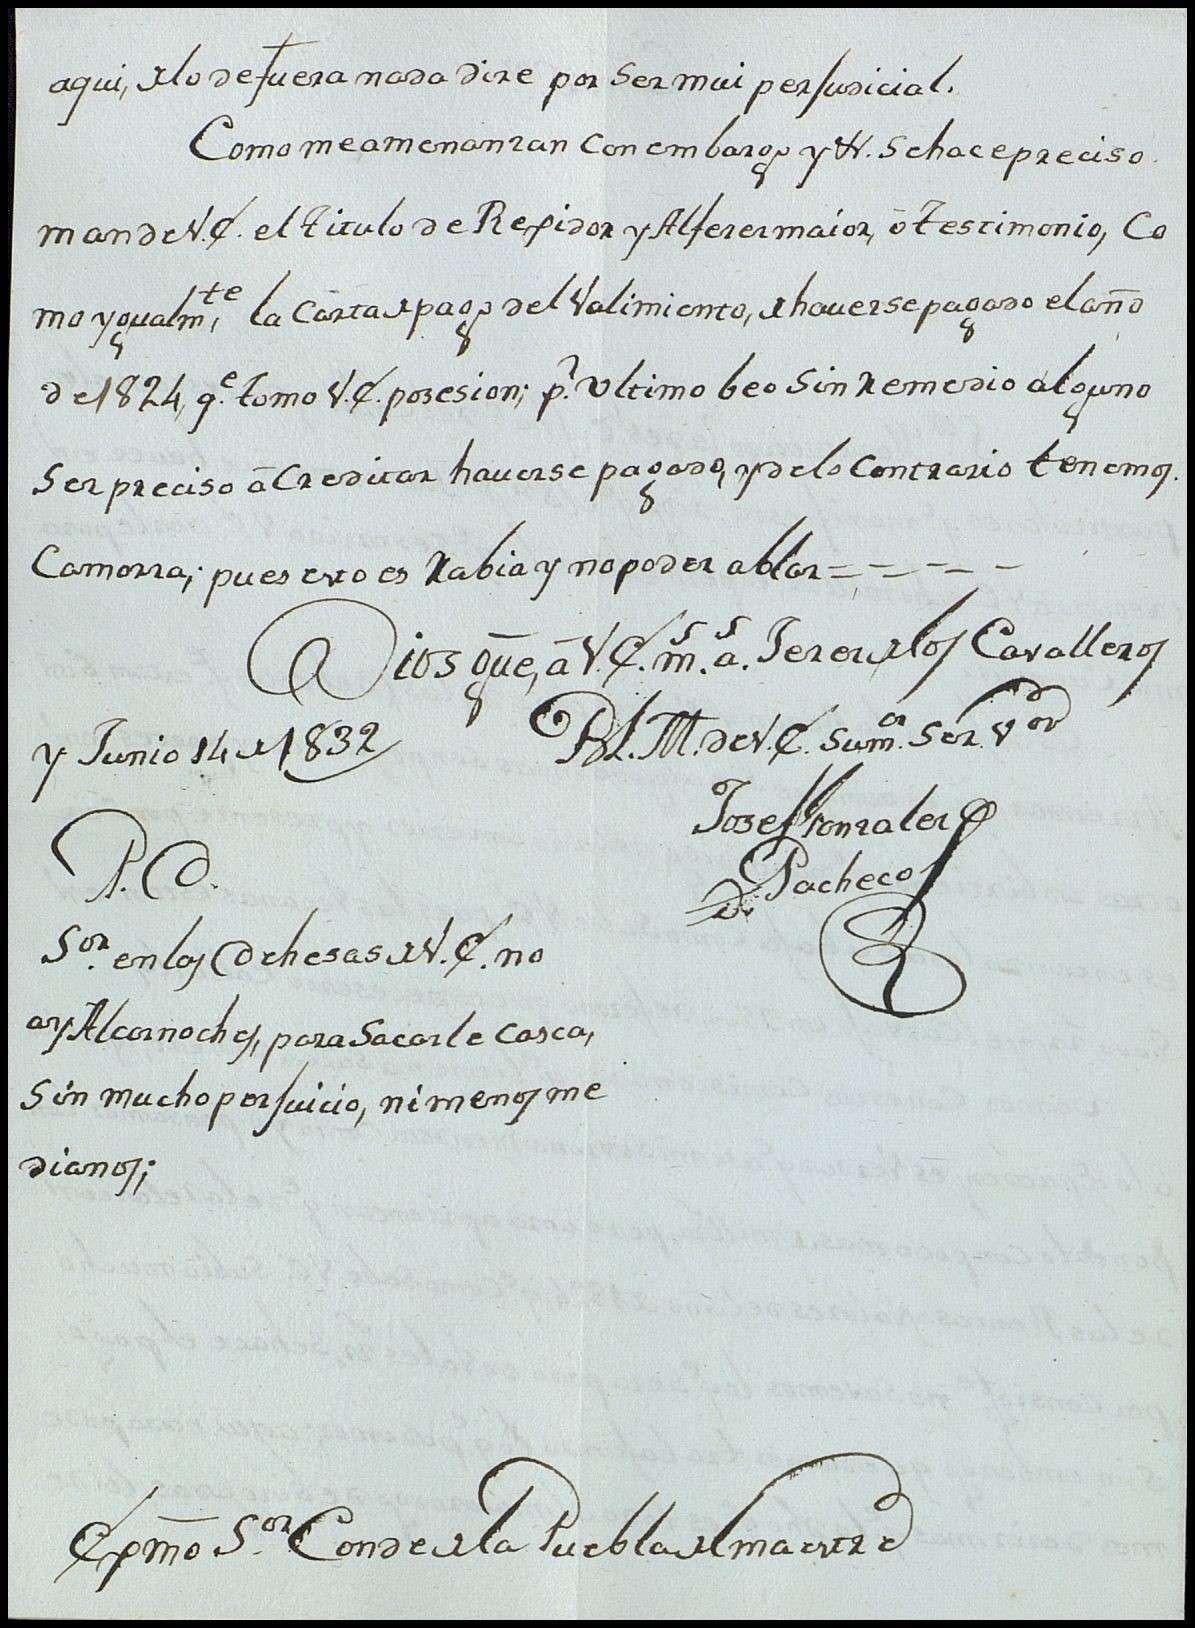 aqui, de lo de fuera nada dire por ser mui persudicial.
Como me amenanzan con embargos y &. se hace preciso
mande V. E. el titulo de Regidor y Alferez maior, ó testimonio, Co
mo ygualmte, la Carta de pago del Valimiento, de haverse pagado el año
de 1824, qe. tomo V. E. posesion; pr. Ultimo beo sin remedio alguno
ser preciso á Creditar haverse pagado, y de lo contrario tenemos
Camorra; pues esto es Rabia y no poder ablar = - - - -
Dios gue, á V. E. ms. as. Jerez de los Cavalleros
y Junio 14 de 1832
B. L. M. de V. E. su mor. Servor
Josef Gonzalez
Pacheco
P. D.
Sor. en las Dehesas de V. E. no
ay Alcornoches, para Sacarle casca,
sin mucho persuicio, ni menos me
dianos;
Exmo Sor. Conde de la Puebla del maestre